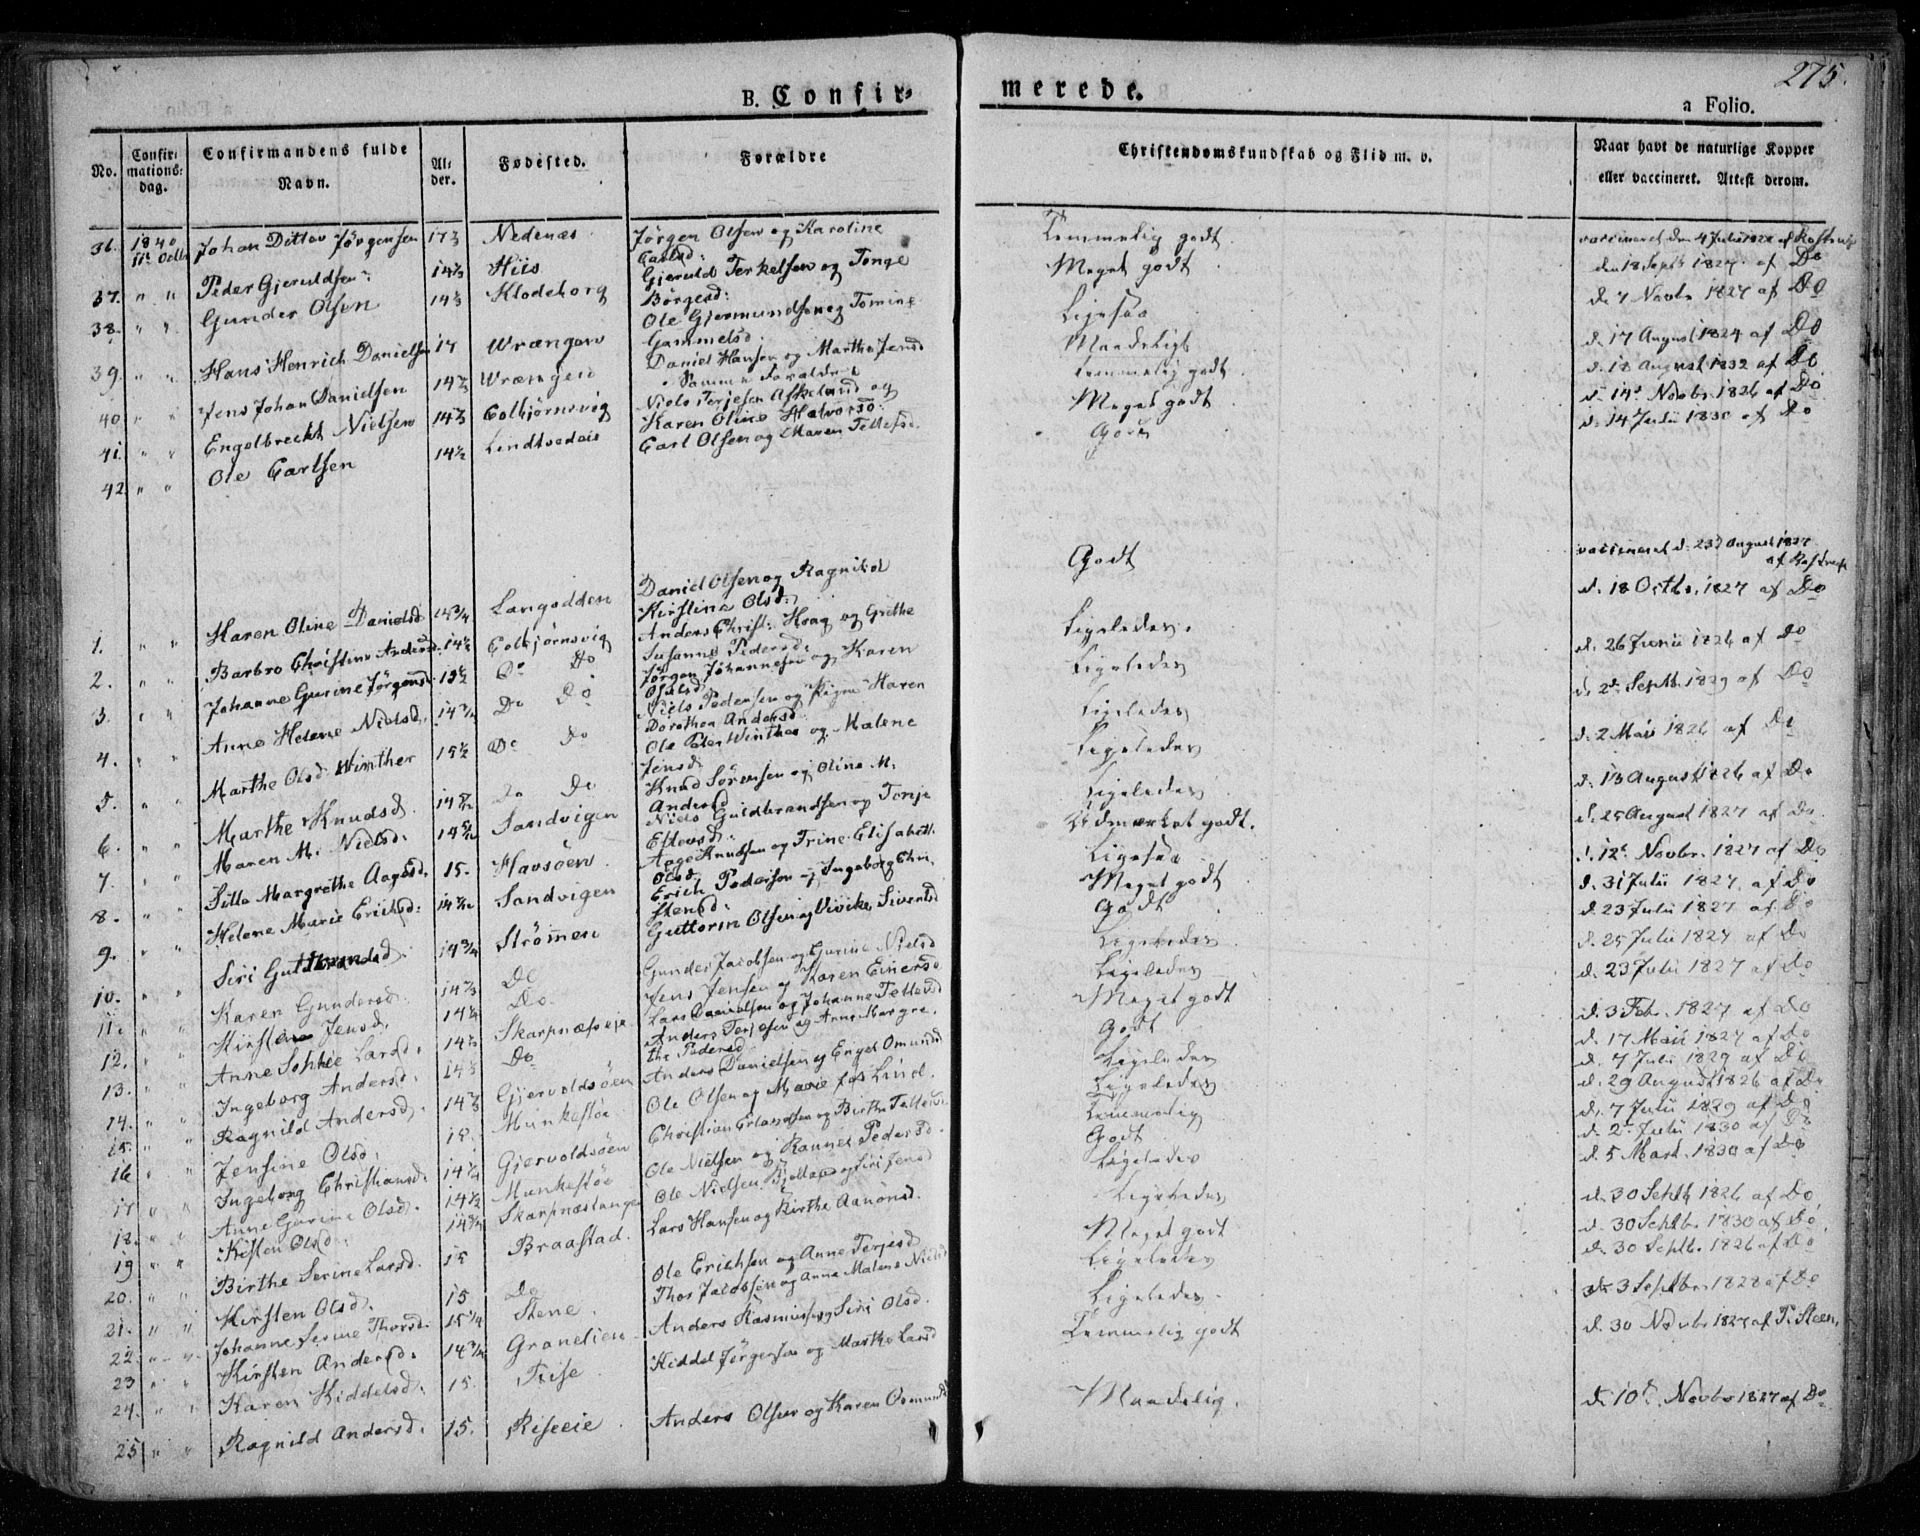 275.
B. Confir-
merede.
a Folio.
No.
Confir-
mations-
dag.
Confirmandens fulde
Navn.
Al-
der.
Fødested.
Forældre
Christendomskundskab og Flid m. v.
Naar havt de naturlige Kopper
eller vaccineret. Attest derom.
36. 1840 11te Octbr Johan Ditlov Jörgensen Nedenæs Jörgen Olsen og Karoline Temmelig godt vaccineret den 4 Julii af
Carlsd:
37. " " Peder Gjeruldsen Hiis Gjeruld Terkelsen og Tonge Meget godt den 18 Septb 1827 af Do
Börgesd:
38. " " Gunder Olsen 14⅓ Klodeborg Ole Gjermundsen og Tomine Ligesaa d. 7 Novbr 1827 af Do
Gammelsd.
39. " " Hans Henrich Danielsen 17 Wrængen Daniel Hansen og Marthe Jensd Maadeligt d. 17 August 1824 af Do
40. " " Jens Johan Danielsen Wrængen Samme Forældre temmelig godt d. 18 August 1832 af Do
41. " " Engelbrecht Nielsen Colbjørnsvig Niels Terjesen Askeland og Meget godt d. 14de Novbr 1826 af Do
Karen Oline Halvorsd:
42. " " Ole Carlsen 14½ Carl Olsen og Maren Tellefsd. Godt d. 14 Julii 1830 af Do
1. " " Karen Oline Danielsd 15¾ Langodden Daniel Olsen og Ragnild Godt vaccineret d. 23d August 1827
Kirstine Olsd:
2. " " Barbro Christine Andersd. 14½ Colbjørnsvig Anders Christ: Haag og Grethe Ligeledes. d. 18 Octbr. 1827 af Do
Susanne Pedersd:
3. " " Johanne Gurine Jörgensd 15½ Do Do Jörgen Johannesen og Karen Ligeledes d. 26 Junii 1826 af Do
Olsd.
4. " " Anne Helene Nielsd. Do Do Niels Pedersen og Signe Karen Ligeledes d. 2d Septb 1829 af Do
Dorothea Andersd:
5. " " Marthe Olsd: Winther 15½ Do Do Ole Peter Winther og Malene Ligeledes d. 2 Maii 1826 af Do
Jensd
6. " " Marthe Knudsd. Do Do Knud Sörensen og Oline M. Ligeledes d. 13 August 1826 af Do
Andersd
7. " " Maren M. Nielsd: Sandvigen Niels Guldbrandsen og Tonje Udmærket godt. d. 25 August 1827 af Do
8. " " Silla Margrethe Aagesd. 15. Havsöen Aage Knudsen og Trine Elisabeth Ligesaa d. 12te Novbr. 1827 af Do
Olsd.
9. " " Helene Marie Erichsd: Sandvigen Erich Pedersen og Ingeborg Chri- Meget godt d. 31 Julii 1827 af Do
stensd:
10. " " Siri Guttormsd. 14¾ Strömmen Guttorm Olsen og Vivike Sivertsd Godt d. 23 Julii 1827 af Do
11. " " Karen Gundersd. Do Gunder Jacobsen og Gurine Nielsd Ligeledes d. 25 Julii 1827 af Do
12. " " Kirstene Jensd. Do Jens Jensen og Karen Einersd Ligeledes d. 23 Julii 1827 af Do
13. " " Anne Sophie Larsd. Skarpnæseie Lars Danielsen og Johanne Tellevsd Meget godt d. 3 Feb. 1827 af Do
14. " " Ingeborg Andersd. Do Anders Terjesen og Anne Margre- Godt d. 17 Maii 1827 af Do
the Pedersd
15. " " Ragnild Andersd. Gjervoldsöen Anders Danielsen og Engel Omundsd Ligeledes d. 7 Juli 1829 af Do
16 " " Jensine Olsd. 15. Munkestöe Ole Olsen og Marie Lind. Ligeledes d. 29 August 1826 af Do
17 " " Ingeborg Christiansd. Gjervoldsöen Christian Erlandsen og Birthe Tellevsd Temmelig d. 7 Julii 1829 af Do
18. " " Anne Gurine Olsd. 14½ Munkestöe Ole Nielsen og Raunei Pedersd. Godt d. 2d Julii 1830 af Do
19 " " Kisten Olsd. 14¾ Skarpnæstangen Ole Nielsen Fjelland og Siri Jensd Ligeledes d. 5 Mart. 1830 af Do
20. " " Birthe Serine Larsd. 15 Braastad. Lars Hansen og Birthe Aanonsd. Ligeledes d. 30 Septb 1826 af Do
21. " " Kirsten Olsd. 15 Do Ole Erichsen og Anne Terjesd Meget godt d. 30 Septbr. 1830 af Do
22. " " Johanne Serine Thorsd. 15¼ Stene. Thor Jacobsen og Anne Malene Nielsd Ligeledes d. 30 Septb. 1826 af Do
23 " " Kirsten Andersd. 14¾ Granelien Anders Rasmusen og Siri Olsd. Ligeledes. d. 3 Septbr. 1828 af Do
24. " " Karen Kiddelsd. 15. Trise Kiddel Jörgensen og Marthe Larsd Temmelig godt d. 30 Novbr 1827 af P. Steen,
25 " " Ragnild Andersd. 15. Riseeie. Anders Olsen og Karen Osmundsd Maadelig. d. 10de Novbr 1827 af Do